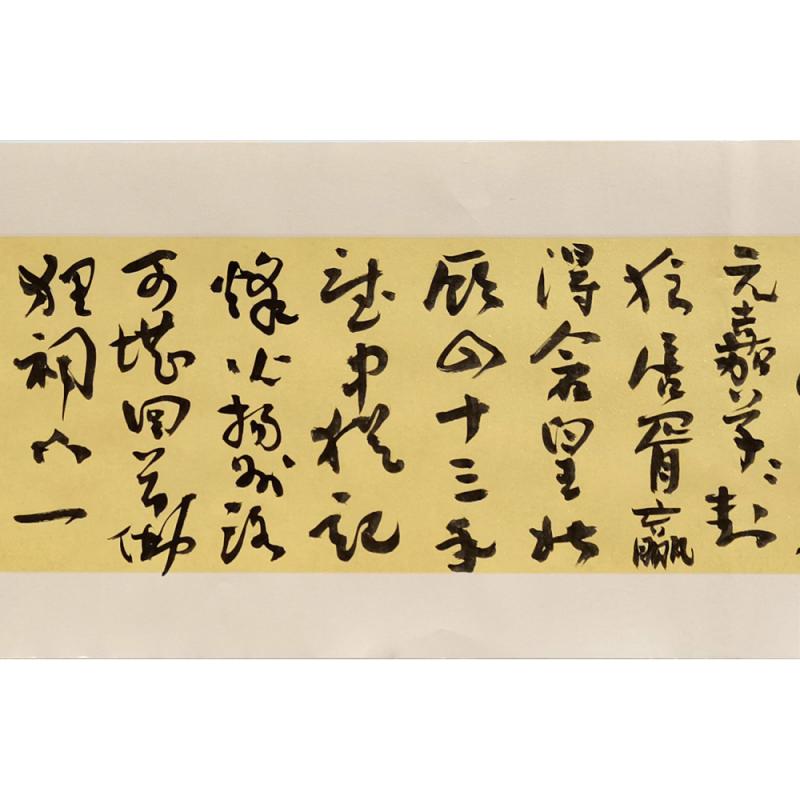 元嘉草〻封
狼居胥贏
得倉皇北
顧四十三年
望中猶記
烽火揚州路
可堪回首佛
狸祠下一